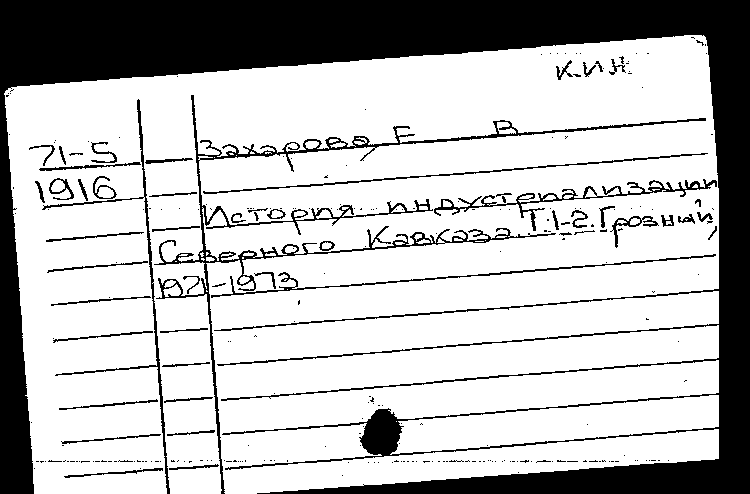 К.И.Н.
71-5
1916
Захарова, Е В
История индустриализации
Северного Кавказа. Т.1-2. Грозный,
1971-1973